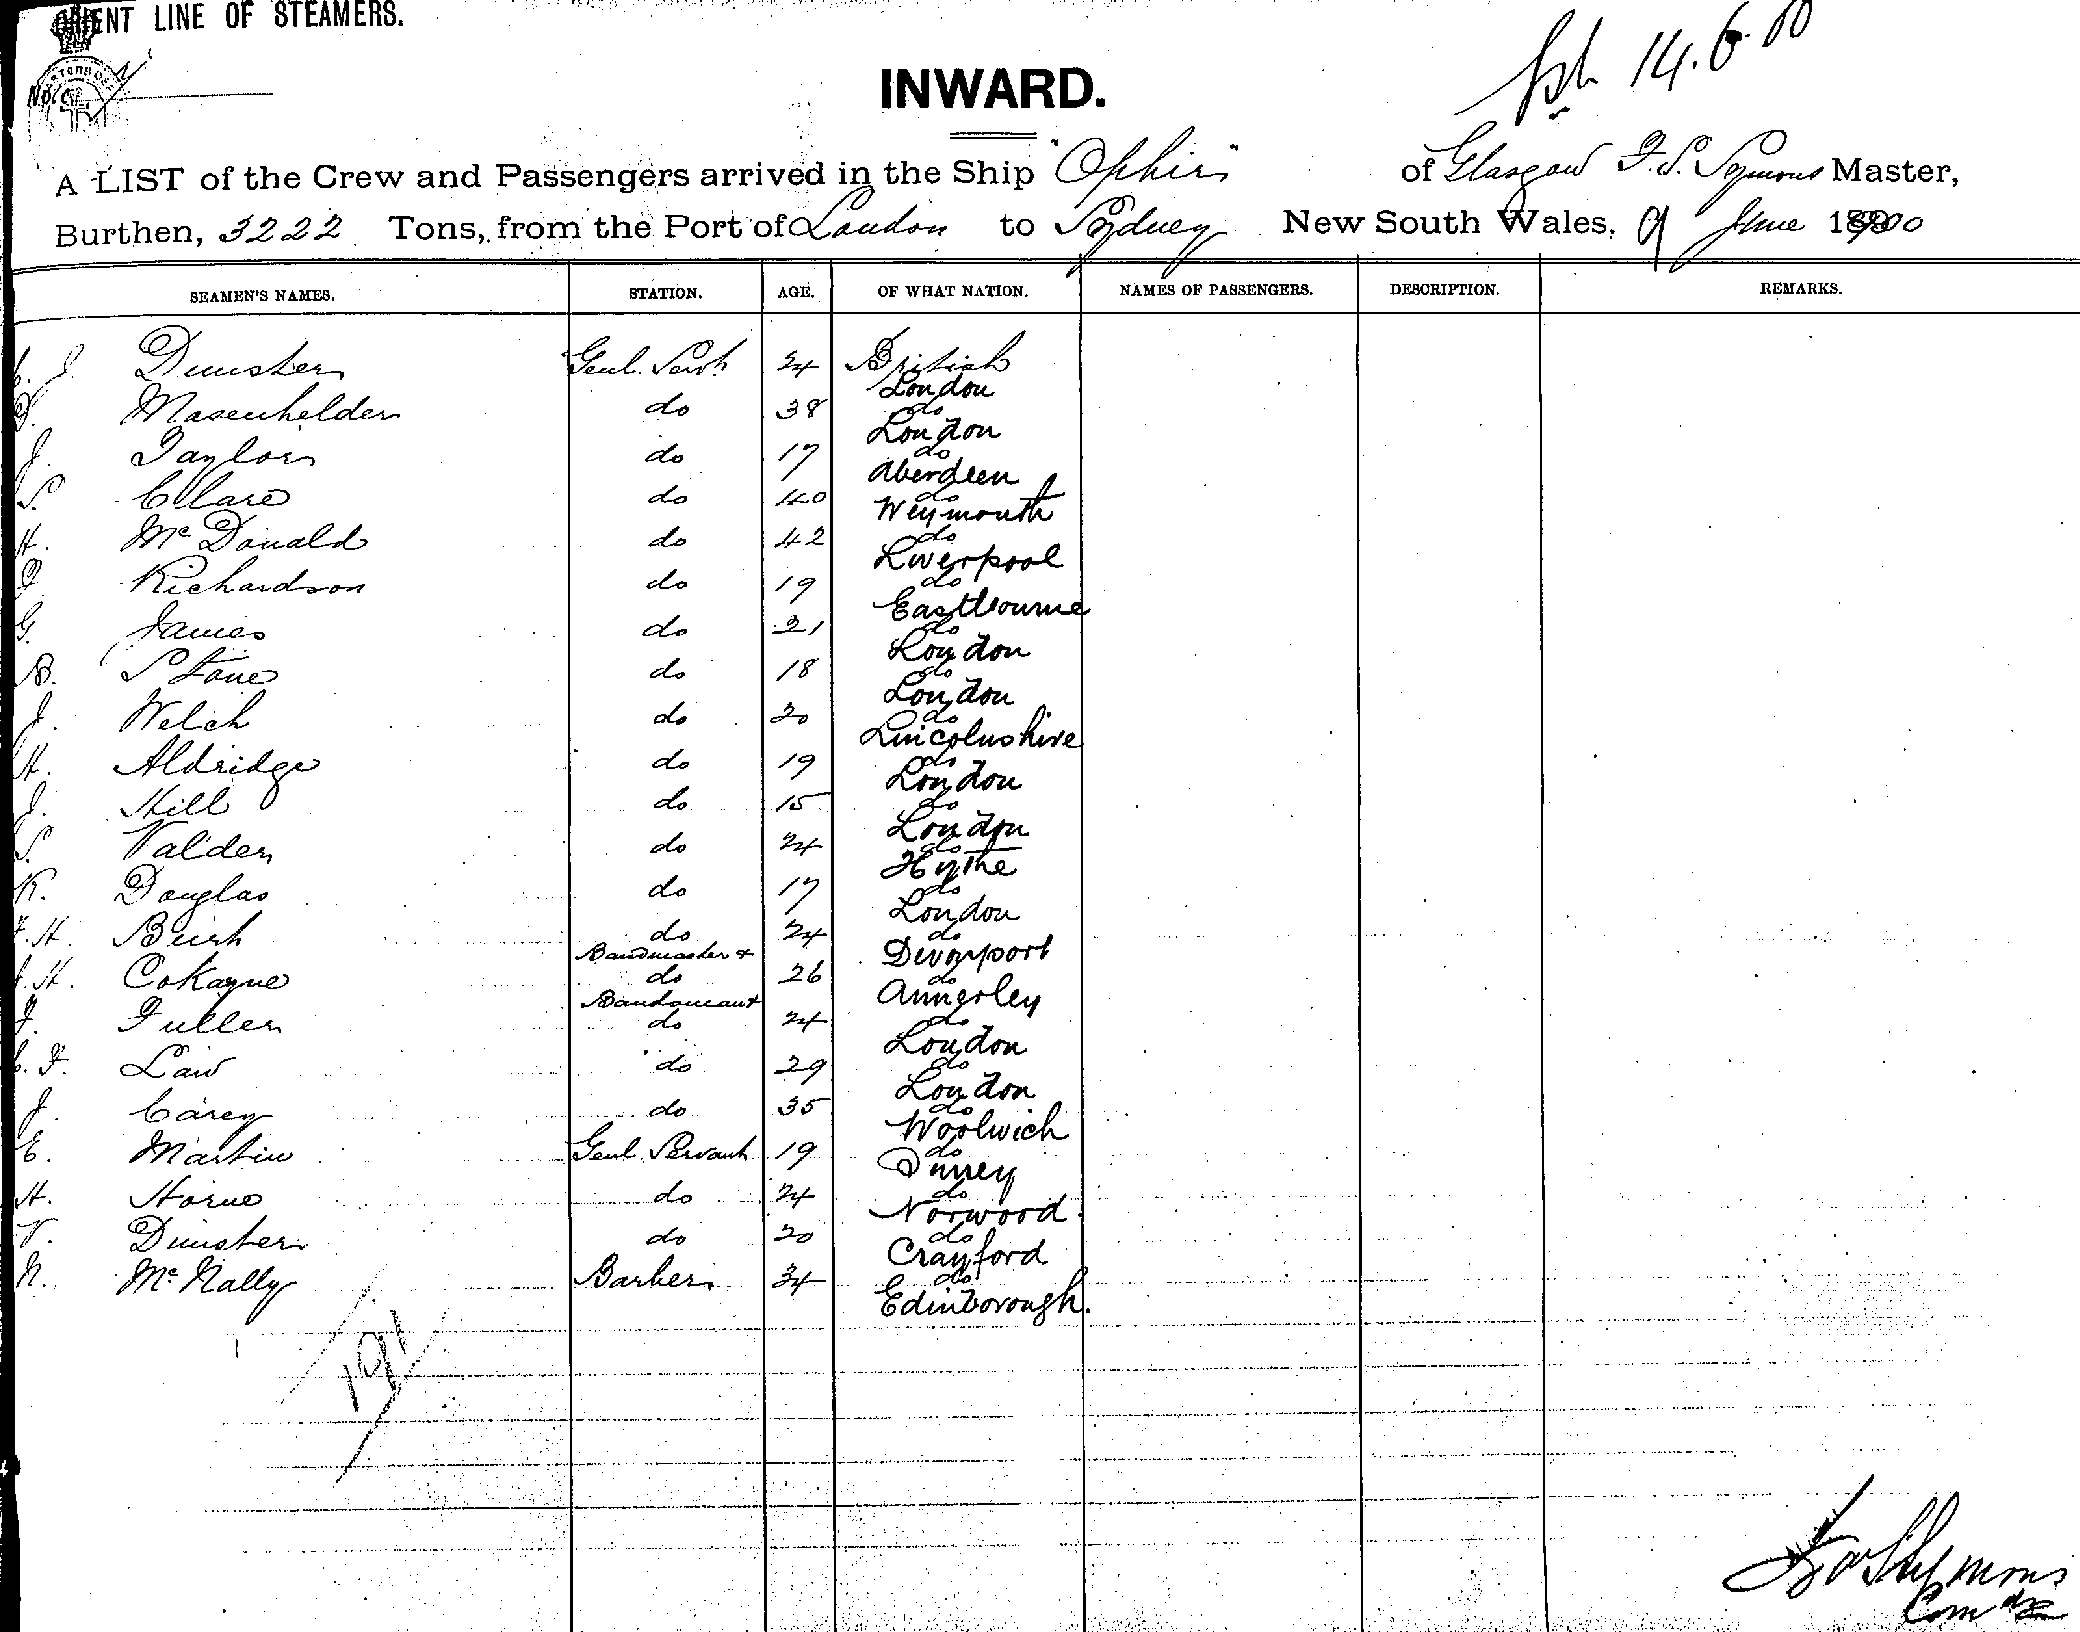 ORIENT LINE OF STEAMERS.
14.6.00
No.
INWARD.
A LIST of the Crew and Passengers arrived in the Ship "Ophir" of Glasgow F. S. Symons Master,
Burthen, 3222 Tons, from the Port of London to Sydney New South Wales, 9 June 1900
SEAMEN'S NAMES. STATION. AGE. OF WHAT NATION. NAMES OF PASSENGERS. DESCRIPTION. REMARKS.
J. Dunster Genl. Servt. 24 British
London
Masenhelder do 38 do
London
J. Taylor do 17 do
Aberdeen
S. Clare do 40 do
Weymouth
H. Mc Donald do 42 do
Liverpool
Richardson do 19 do
Eastbourne
G. James do 21 do
London
B. Stone do 18 do
London
J. Welch do 20 do
Lincolnshire
H. Aldridge do 19 do
London
J. Hill do 15 do
London
S. Valder do 24 do
Hythe
R. Douglas do 17 do
London
F. H. Birch do 24 do
Devonport
H. Cokayne Bandmaster + do 26 do
Annerley
F. Fuller Bandsman + do 24 do
London
F. Law do 29 do
London
J. Carey do 35 do
Woolwich
E. Martin Genl. Servant 19 do
Surrey
H. Horne do 24 do
Norwood
V. Dunster do 20 do
Crayford
N. Mc Nally Barber 34 do
Edinborough.
191
Symons